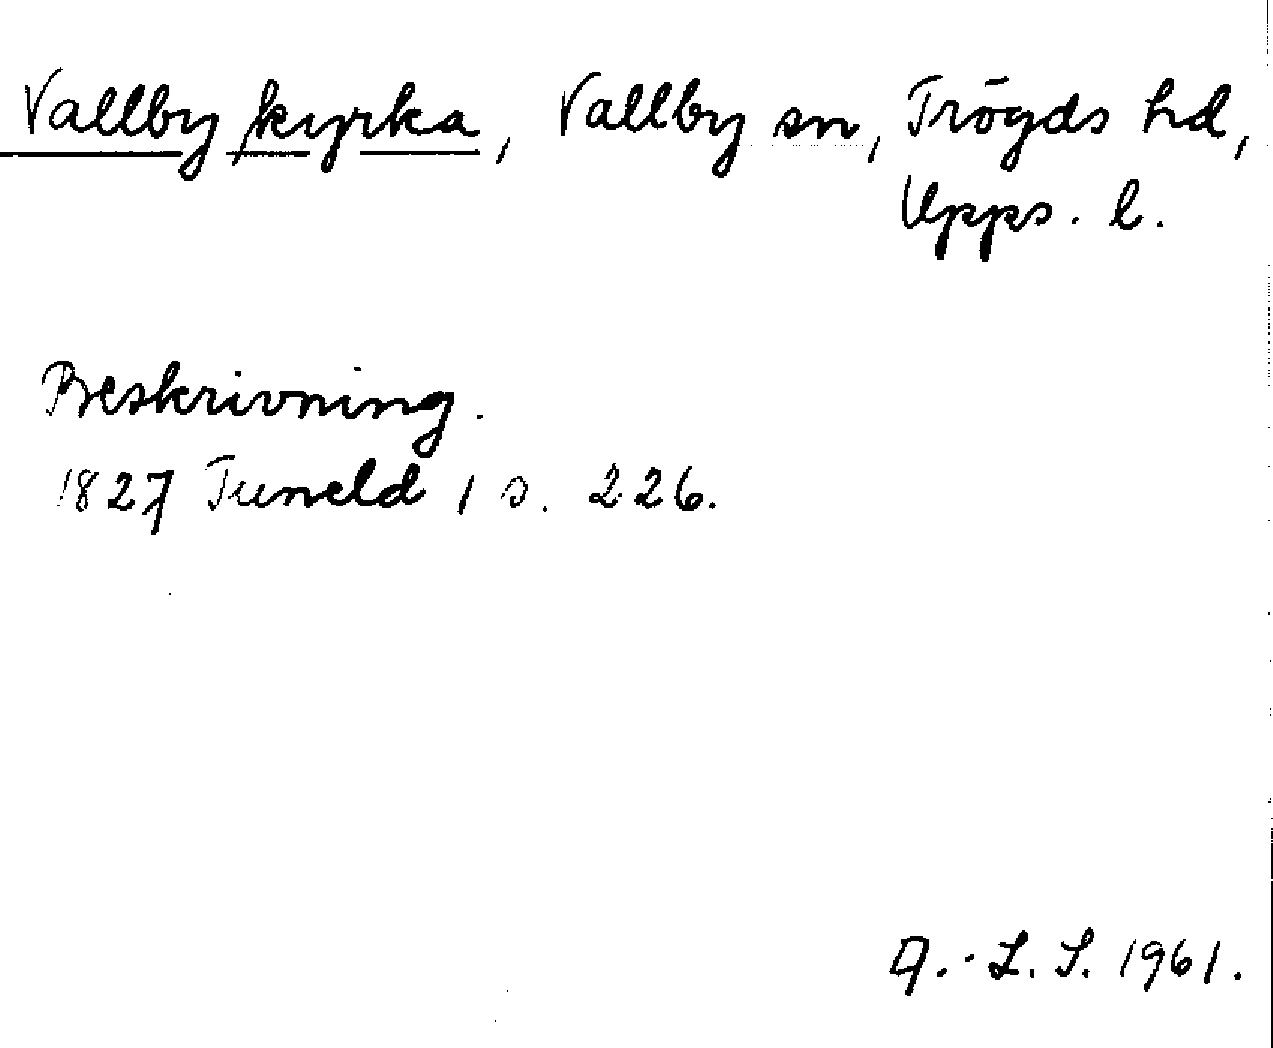 Vallby kyrka, Vallby sn, Trögds hd,
Upps. l.
Beskrivning.
1827 Tuneld 1 s. 226.
A.-L. S. 1961.